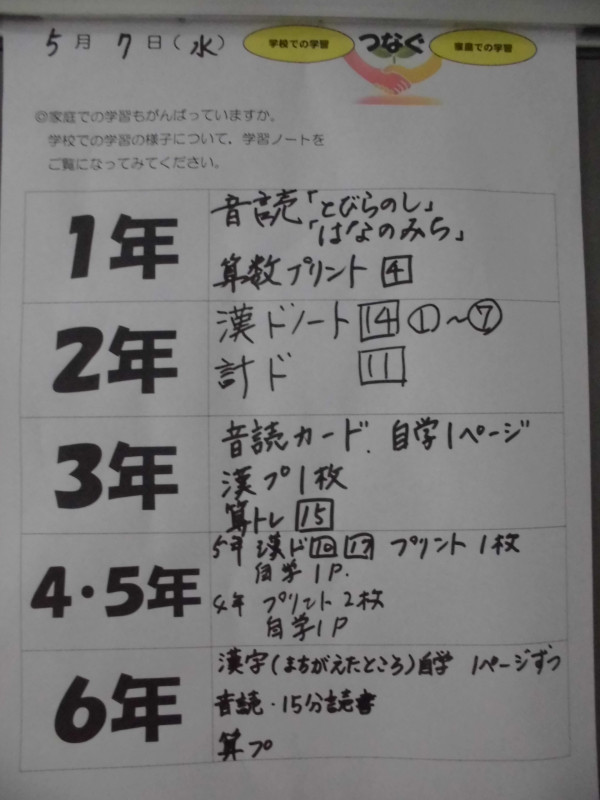 5月 7日(水)
学校での学習 つなぐ 家庭での学習
◎家庭での学習もがんばっていますか。
学校での学習の様子について、学習ノートを
ご覧になってみてください。
1年
音読「とびらのし」
「はなのみち」
算数プリント 4
2年
漢ドノート 14 ①~⑦
計ド 11
3年
音読カード、自学1ページ
漢プ1枚
算トレ 15
4・5年
5年 漢ド 17 プリント 1枚
自学1P.
4年 プリント2枚
自学1P
6年
漢字(まちがえたところ)自学 1ページずつ
音読・15分読書
算プ